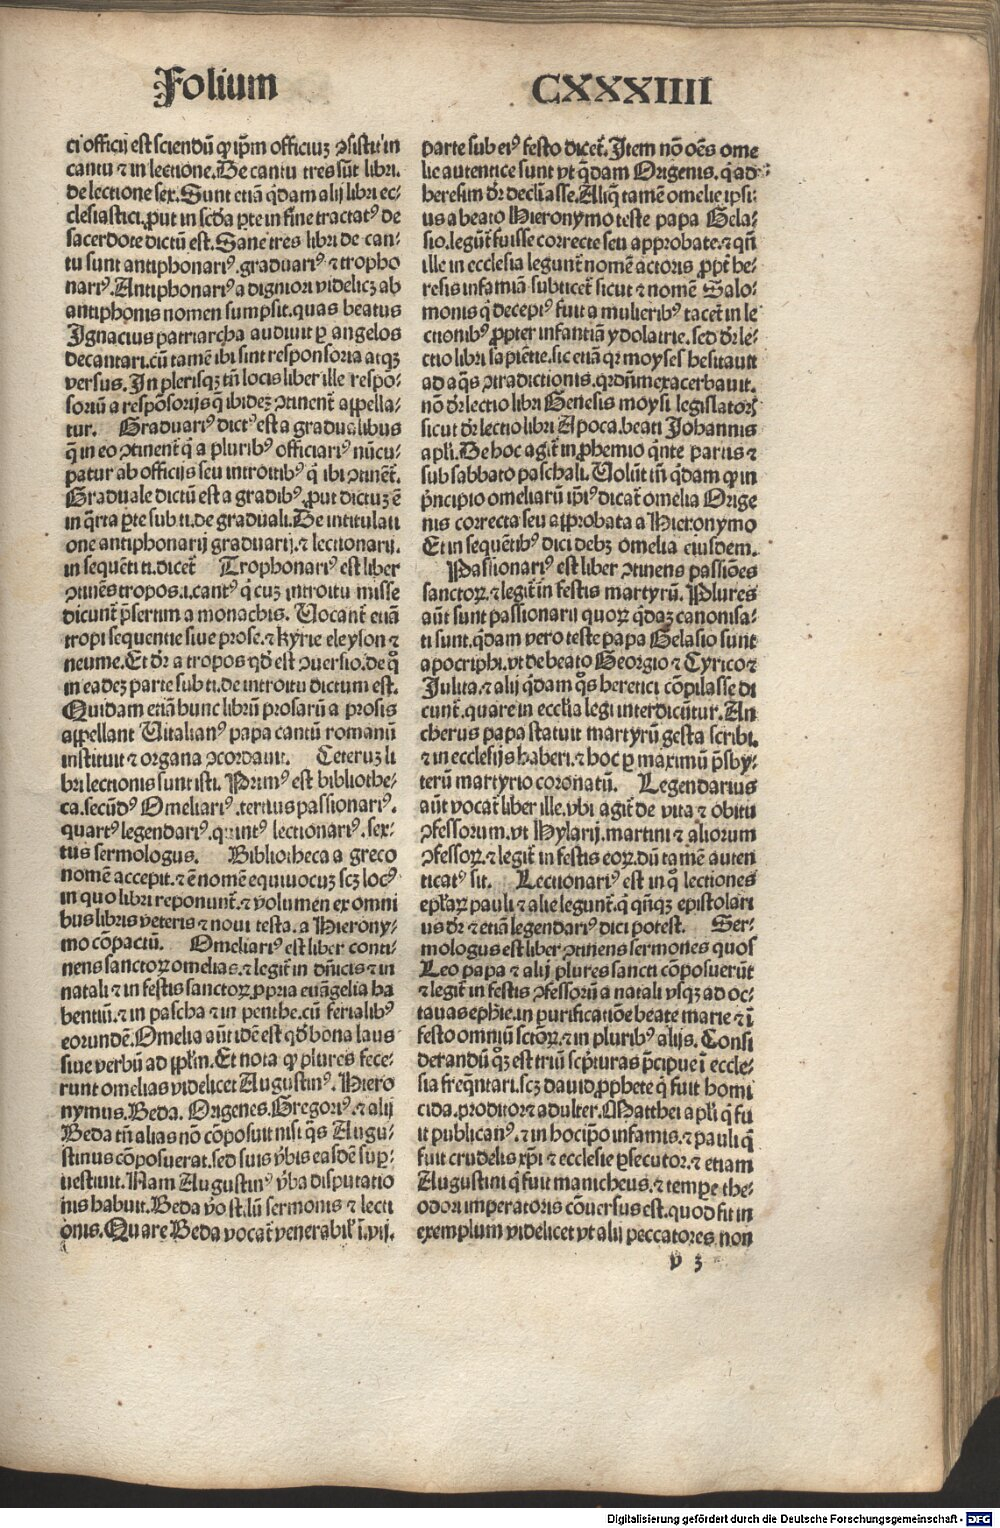 Folium CXXXIIII
ci officij est sciendū ꝙ ip̄m officiuꝫ ꝯsistit in
cantu ⁊ in lectione. De cantu tres sūt libri.
de lectione sex. Sunt etiā q̇dam alij libri ec-
clesiastici, ꝓut in scd̄a ꝑte in fine tractatꝰ de
sacerdote dictū est. Sane tres libri de can-
tu sunt antiphonariꝰ. graduariꝰ ⁊ tropho
nariꝰ. Antiphonariꝰ a digniori videlicꝫ ab
antiphonis nomen sumpsit. quas beatus
Ignacius patriarcha audiuit ꝑ angelos
decantari. cū tamē ibi sint responsoria atqꝫ
versus. In plerisqꝫ tn̄ locis liber ille respō-
soriū a respōsorijs q̄ ibideꝫ ꝯtinent̄ appella-
tur. Graduariꝰ dictꝰ est a gradualibus
q̄ in eo ꝯtinent̄ q̄ a pluribꝰ officiariꝰ nūcu-
patur ab officijs seu introitibꝰ q̄ ibi ꝯtinēt̄.
Graduale dictū est a gradibꝰ, ꝓut dictuꝫ ē
in q̄rta ꝑte sub ti. de graduali. De intitulati
one antiphonarij graduarij. ⁊ lectionarij.
in sequēti ti. dicet̄ Trophonariꝰ est liber
ꝯtinēs tropos. i. cantꝰ q̇ cuꝫ introitu misse
dicunt̄ p̄sertim a monachis. Vocant̄ etiā
tropi sequentie siue prose. ⁊ kyrie eleyson ⁊
neume. Et dr̄ a tropos qd̄ est ꝯuersio. de q̊
in eadeꝫ parte sub ti. de introitu dictum est.
Quidam etiā hunc librū prosarū a prosis
appellant Vitalianꝰ papa cantū romanū
instituit ⁊ organa ꝯcordauit. Ceteruꝫ li
bri lectionis sunt isti. Primꝰ est bibliothe-
ca. secūdꝰ Omeliariꝰ. tertius passionariꝰ.
quartꝰ legendariꝰ. quintꝰ lectionariꝰ. sex-
tus sermologus. Bibliotheca a greco
nomē accepit. ⁊ ē nomē equiuocuꝫ scꝫ locꝰ
in quo libri reponunt̄. ⁊ volumen ex omni
bus libris veteris ⁊ noui testa. a Hierony-
mo cōpactū. Omeliariꝰ est liber conti-
nens sanctoꝝ omelias. ⁊ legit̄ in dn̄icis ⁊ in
natali ⁊ in festis sanctoꝝ ꝓpria euāgelia ha
bentiū. ⁊ in pascha ⁊ in penthe. cū ferialibꝰ
eorundē. Omelia aūt idē est qd̄ bona laus
siue verbū ad pplm̄. Et nota ꝙ plures fece-
runt omelias videlicet Augustinꝰ. Hiero
nymus. Beda. Origenes. Gregoriꝰ. ⁊ alij
Beda tn̄ alias nō cōposuit nisi q̄s Augu-
stinus cōposuerat. sed suis v̄bis easdē suꝑ-
uestiuit. Nam Augustinꝰ v̄ba disputatio
nis habuit. Beda v̊o stilū sermonis ⁊ lecti
onis. Quare Beda vocat̄ venerabil' ī. vij.
parte sub eiꝰ festo dicet̄. Item nō oēs ome
lie autentice sunt vt q̄dam Origenis. q̇ ad
heresim dr̄ declīasse. Aliq̄ tamē omelie ipsi-
us a beato Hieronymo teste papa Gela-
sio. legūt̄ fuisse correcte seu approbate. ⁊ qn̄
ille in ecclesia legunt̄ nomē actoris ꝓpt̄ he-
resis infamiā subticet̄ sicut ⁊ nomē Salo-
monis q̇ deceptꝰ fuit a mulieribꝰ tacet̄ in le
ctionibꝰ ꝓpter infantiā ydolatrie. sed dr̄ le-
ctio libri sapiētie. sic etiā qr moyses hesitauit
ad aq̄s ꝯtradictionis. qr dn̄m exacerbauit.
nō dr̄ lectio libri Genesis moysi legislatorꝭ
sicut dr̄ lectio libri Apoca. beati Johannis
apl̄i. De hoc agit̄ in ꝓhemio q̇nte partis ⁊
sub sabbato paschali. Volūt tn̄ q̇dam ꝙ in
p̄ncipio omeliarū ip̄iꝰ dicat̄ omelia Orige
nis correcta seu approbata a Hieronymo
Et in sequētibꝰ dici debꝫ omelia eiusdem.
Passionariꝰ est liber ꝯtinens passiōes
sanctoꝝ. ⁊ legit̄ in festis martyrū. Plures
aūt sunt passionarij quoꝝ q̇daꝫ canonisa-
ti sunt. q̇dam vero teste papa Gelasio sunt
apocriphi. vt de beato Georgio ⁊ Cyrico ⁊
Julita. ⁊ alij q̇dam q̊s heretici cōpilasse di
cunt̄. quare in eccl̄ia legi interdicūtur. An
cherus papa statuit martyrū gesta scribi.
⁊ in ecclesijs haberi. ⁊ hoc ꝑ maximū p̄sby-
terū martyrio coronatū. Legendarius
aūt vocat̄ liber ille. vbi agit̄ de vita ⁊ obitu
ꝯfessorum. vt Hylarij. martini ⁊ aliorum
ꝯfessoꝝ. ⁊ legit̄ in festis eoꝝ. dū tamē auten
ticatꝰ sit. Lectionariꝰ est in q̊ lectiones
epl̄aꝝ pauli ⁊ alie legunt̄. q̇ q̇nqꝫ epistolari
us dr̄ ⁊ etiā legendariꝰ dici potest. Ser-
mologus est liber ꝯtinens sermones quos
Leo papa ⁊ alij plures sancti cōposuerūt
⁊ legit̄ in festis ꝯfessorū a natali vsqꝫ ad oc-
tauas ephīe. in purificatiōe beate marie ⁊ ī
festo omniū sctōꝝ. ⁊ in pluribꝰ alijs. Consi
derandū qꝫ est triū scp̄turas p̄cipue ī eccle-
sia freq̄ntari. scꝫ dauid, ꝓphete q̇ fuit homi
cida. proditor ⁊ adulter. Matthei apl̄i q̇ fu
it publicanꝰ. ⁊ in hoc ip̄o infamis. ⁊ pauli q̇
fuit crudelis xp̄i ⁊ ecclesie ꝑsecutor. ⁊ etiam
Augustini q̇ fuit manicheus. ⁊ tempe the-
odori imperatoris cōuersus est. quod fit in
exemplum videlicet vt alij peccatores non
v 3
Digitalisierung gefördert durch die Deutsche Forschungsgemeinschaft - DFG